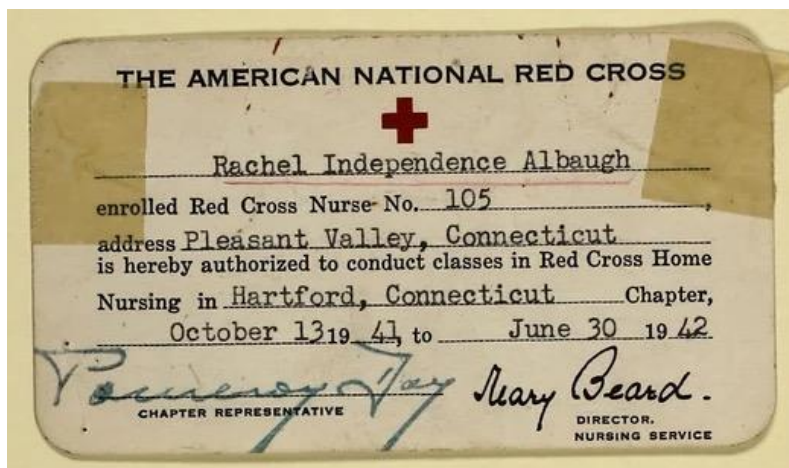 THE AMERICAN NATIONAL RED CROSS
Rachel Independence Albaugh
enrolled Red Cross Nurse No. 105,
address Pleasant Valley, Connecticut
is hereby authorized to conduct classes in Red Cross Home
Nursing in Hartford, Connecticut Chapter,
October 13 19 41, to June 30 19 42
Pomeroy Day Mary Beard.
CHAPTER REPRESENTATIVE DIRECTOR,
NURSING SERVICE